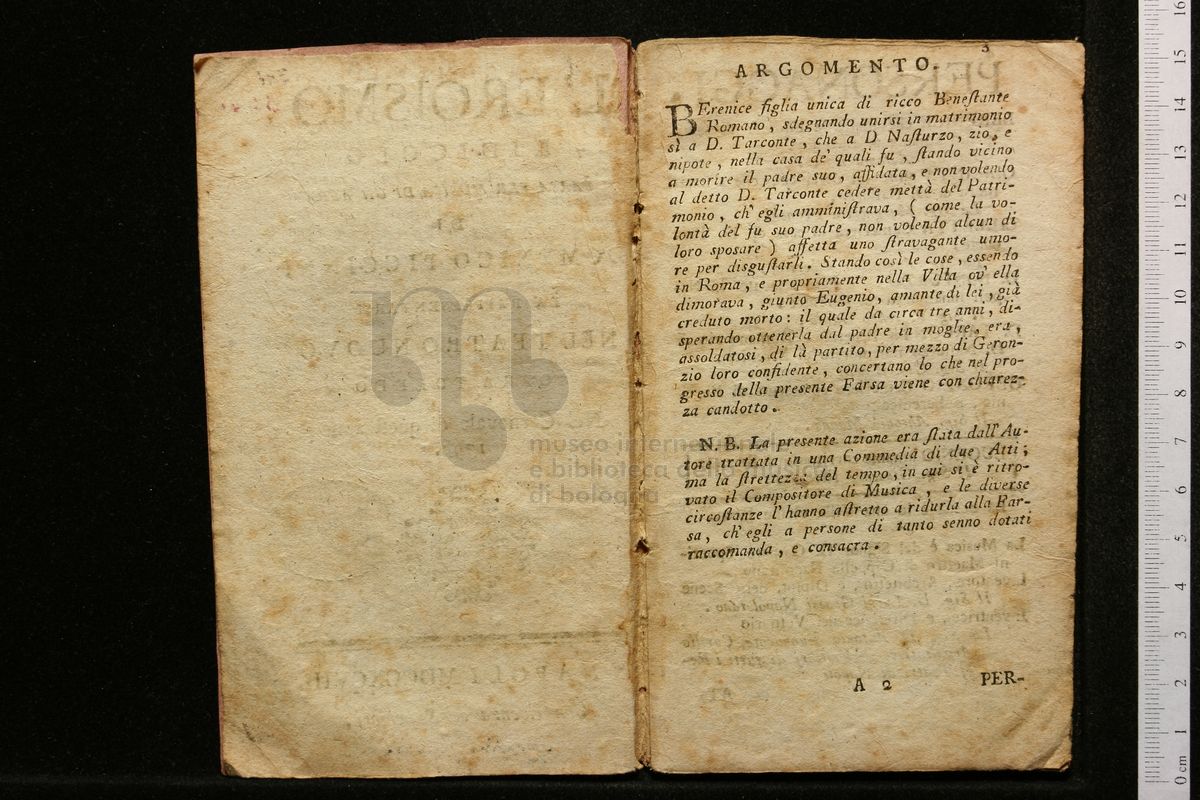 3
ARGOMENTO.
BErenice figlia unica di ricco Benestante
Romano, sdegnando unirsi in matrimonio
sì a D. Tarconte, che a D. Nasturzo, zio, e
nipote, nella casa de' quali fu, stando vicino
a morire il padre suo, affidata, e non volendo
al detto D. Tarconte cedere mettà del Patri-
monio, ch' egli amministrava, ( come la vo-
lontà del fu suo padre, non volendo alcun di
loro sposare ) affetta uno stravagante umo-
re per disgustarli. Stando così le cose, essendo
in Roma, e propriamente nella Villa ov' ella
dimorava, giunto Eugenio, amante di lei, già
creduto morto: il quale da circa tre anni, di-
sperando ottenerla dal padre in moglie, era,
assoldatosi, di là partito, per mezzo di Geron-
zio loro confidente, concertano lo che nel pro-
gresso della presente Farsa viene con chiarez-
za candotto.
N. B. La presente azione era stata dall' Au-
tore trattata in una Commedia di due Atti;
ma la strettezza del tempo, in cui si è ritro-
vato il Compositore di Musica, e le diverse
circostanze l' hanno astretto a ridurla alla Far-
sa, ch' egli a persone di tanto senno dotati
raccomanda, e consacra.
A 2
PER-
museo internazionale
e biblioteca della musica
di bologna
0 cm 1 2 3 4 5 6 7 8 9 10 11 12 13 14 15 16